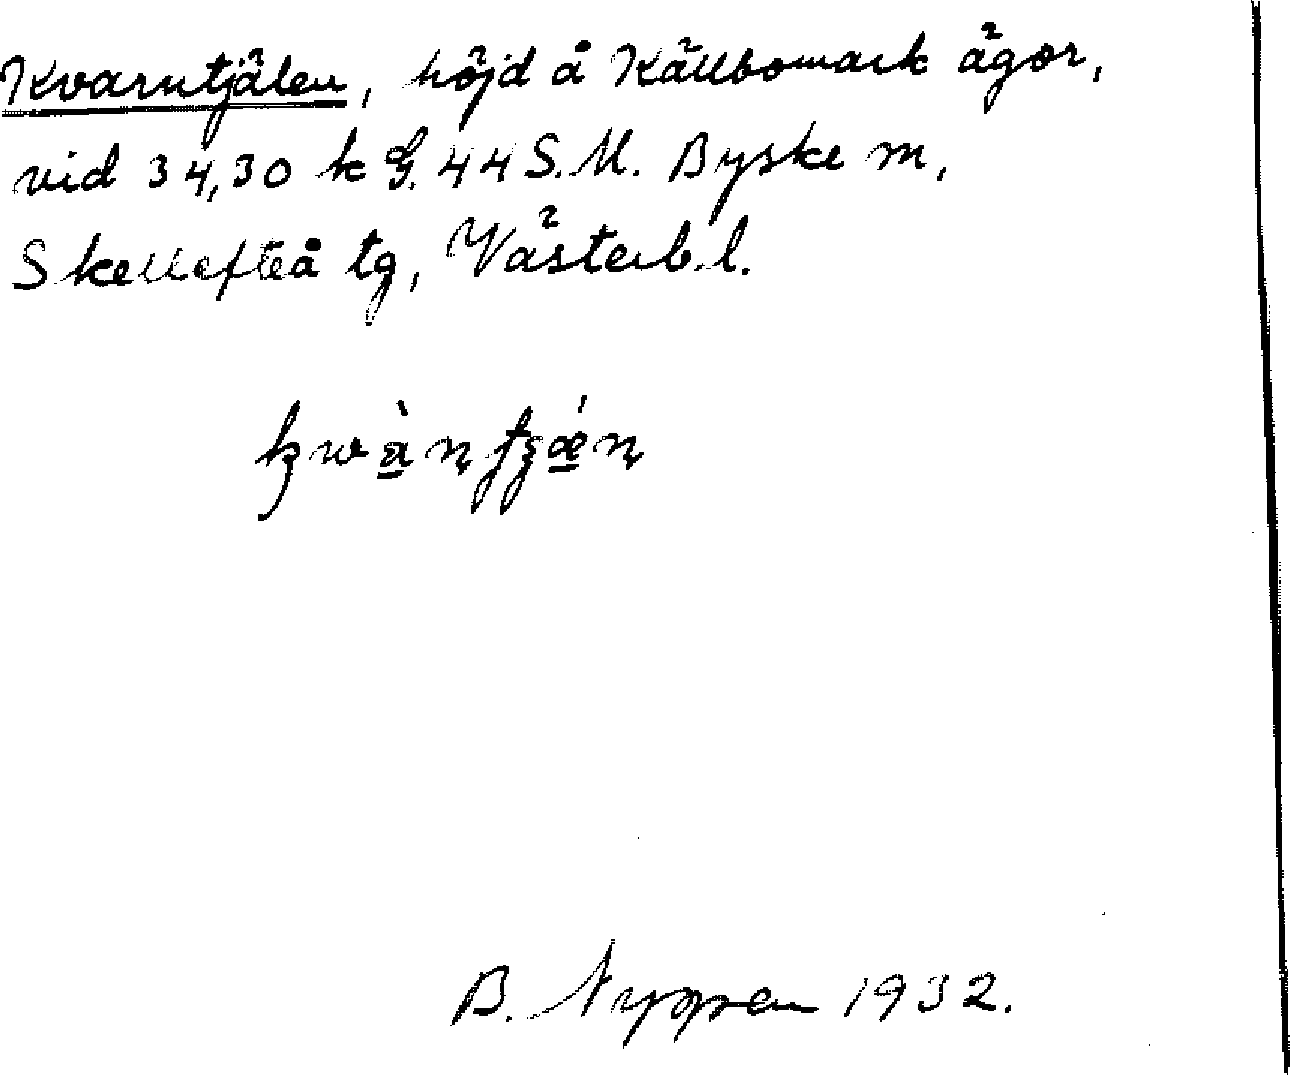 Kvarntjälen, höjd å Källbomark ägor,
vid 34,30 k G. 44 S.M. Byske m,
Skellefteå tg, Västerb. l.
B. Nygren 1932.